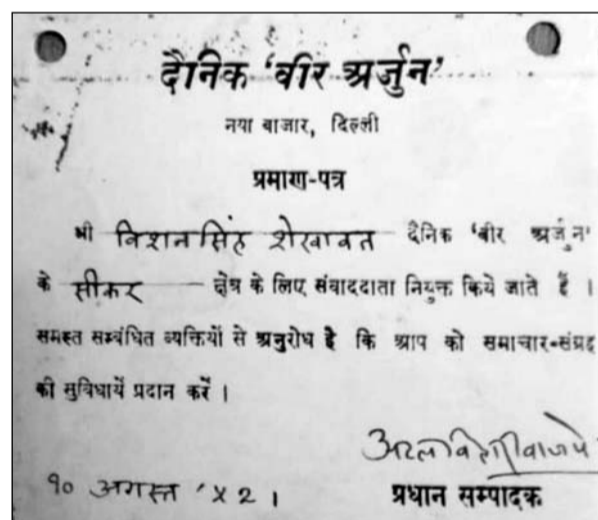 दैनिक 'वीर अर्जुन'
नया बाजार, दिल्ली
प्रमाण-पत्र
श्री बिशनसिंह शेखावत दैनिक 'वीर अर्जुन'
के सीकर क्षेत्र के लिए संवाददाता नियुक्त किये जाते हैं ।
समस्त सम्बंधित व्यक्तियों से अनुरोध है कि आप को समाचार-संग्रह
की सुविधायें प्रदान करें ।
अटल बिहारी वाजपे
१० अगस्त '५२ ।
प्रधान सम्पादक